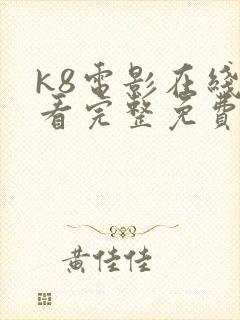 k8電影在綫
看完整免費
黃佳佳